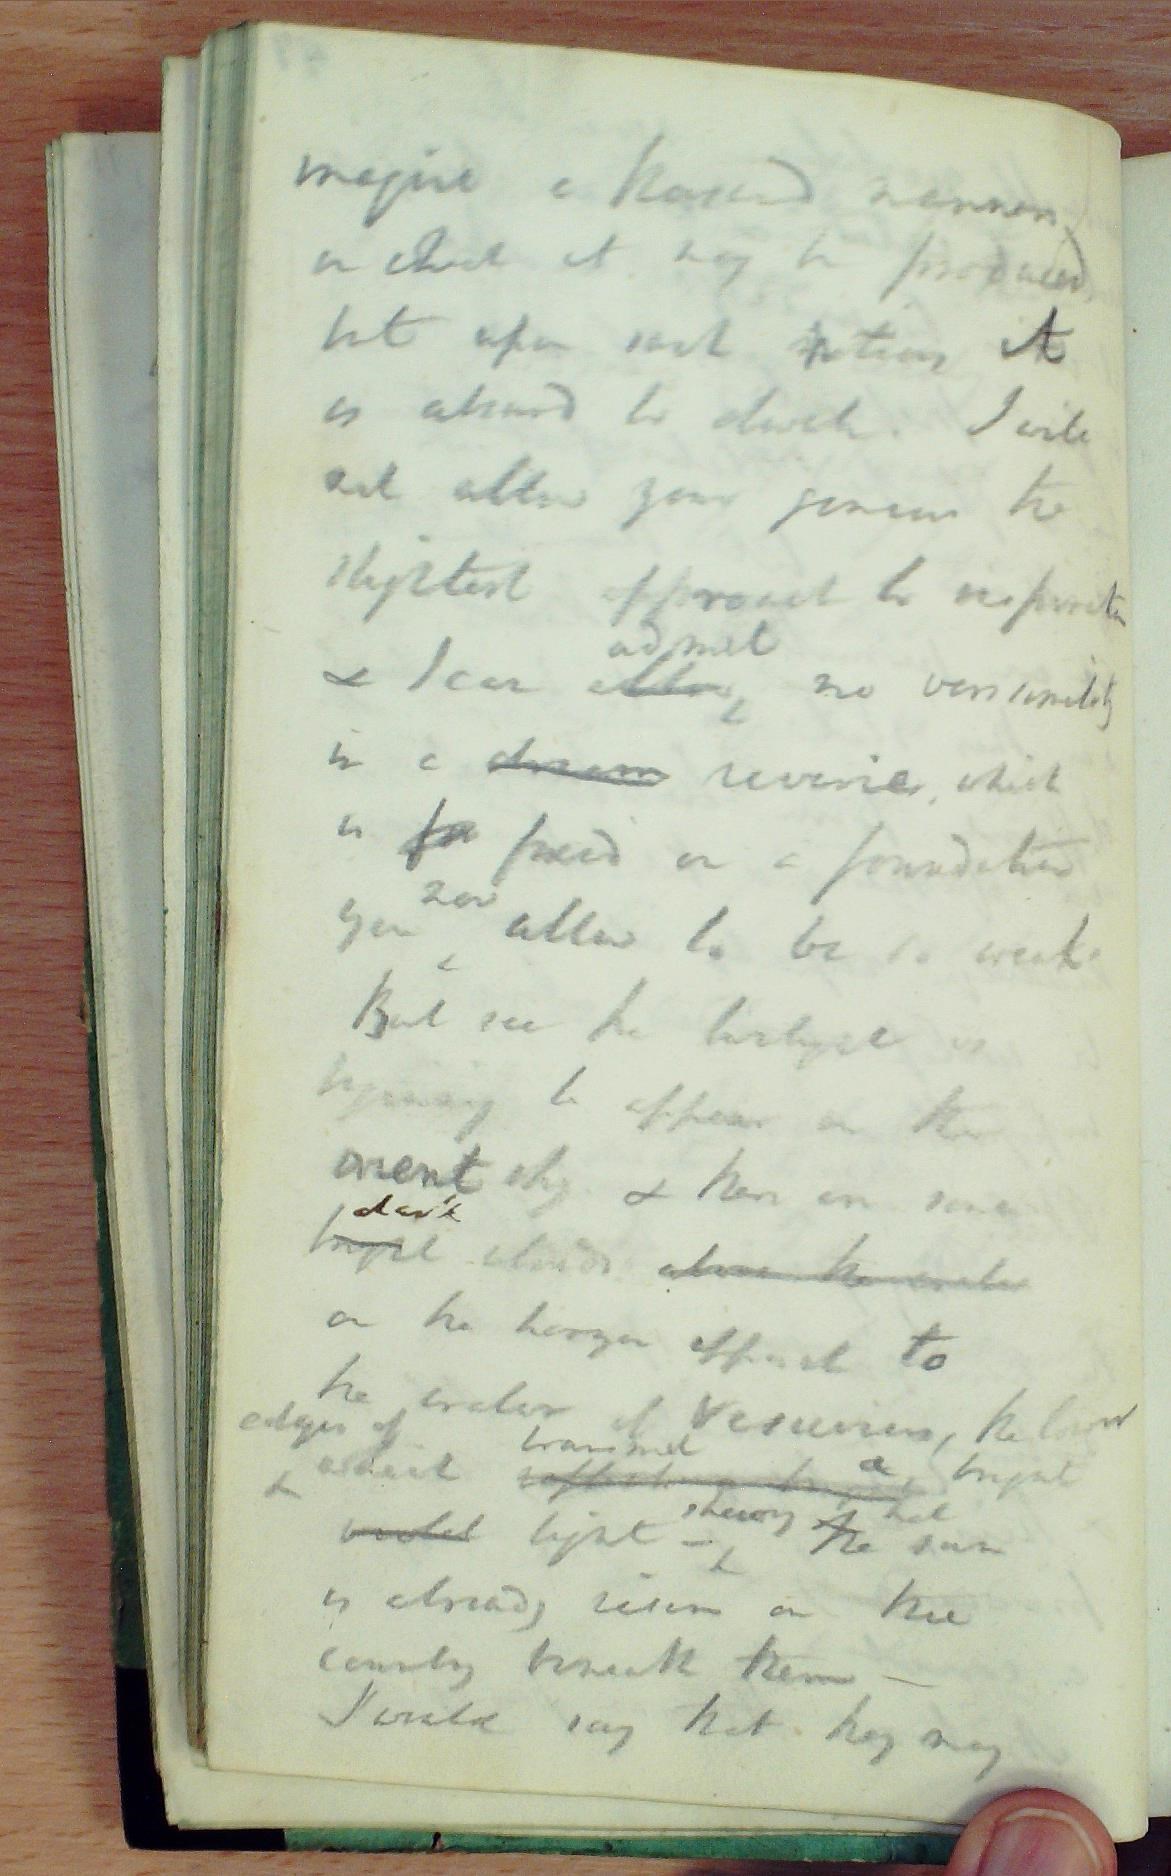 imagine a thousand manners
in which it may be produced,
but upon such notions it
is absurd to dwell. I will
not allow your genius the
slightest approach to inspiration
admit
& I can allow no verisimility
in a dream reverie, which
is fixed on a foundation
now
you allow to be so weak.
But see the twilight is
beginning to appear in the
orient sky & there are some
dark
bright clouds above the crater
on the horizon opposite to
the crater of Vesuvius, the lower
edges of
transmit a
& which bright
shewing that
violet light – the sun
is already risen on the
country beneath them –
I would say that they may